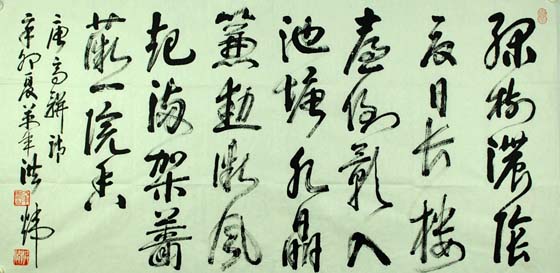 緑樹濃陰
夏日长樓
臺倒影入
池塘水晶
簾動微風
起滿架薔
薇一院香
唐高駢詩
辛卯夏